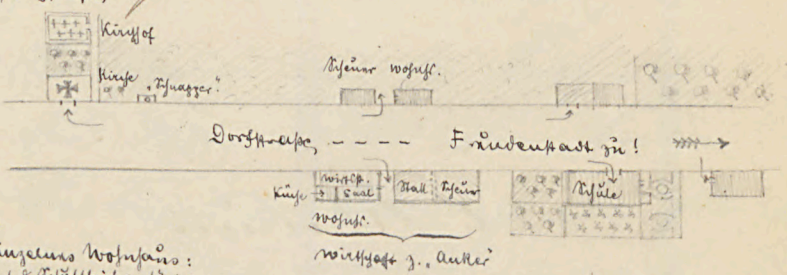 Kirchhof
Kirche
"Schnapper"
Scheuer Wohnhs.
Dorfstrasse, - - - - Freudenstadt zu!
Wirtsch.
Küche
Saal
Stall
Scheuer
Schule
Wohnhs.
Wirtschaft z. "Anker"
einzelnes Wohnhaus: